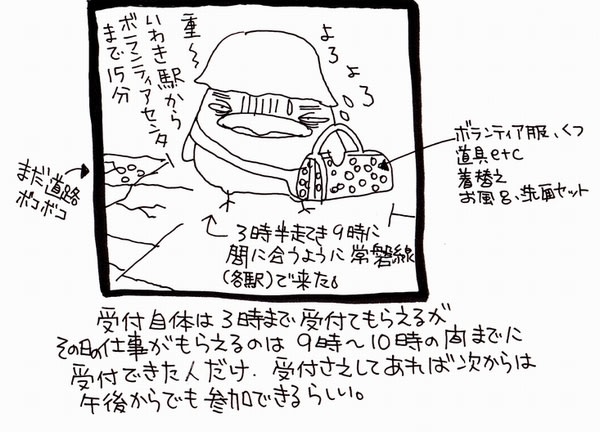 重〜
いわき駅から
ボランティアセンター
まで15分
よろよろ
ボランティア服、くつ
道具etc
着替え
お風呂、洗面セット
まだ道路
ボコボコ
3時半走でき9時に
間に合うように常磐線
(各駅)で来た。
受付自体は3時まで受付てもらえるが
その日の仕事がもらえるのは9時〜10時の間までに
受付できた人だけ、受付さえしてあれば次からは
午後からでも参加できるらしい。